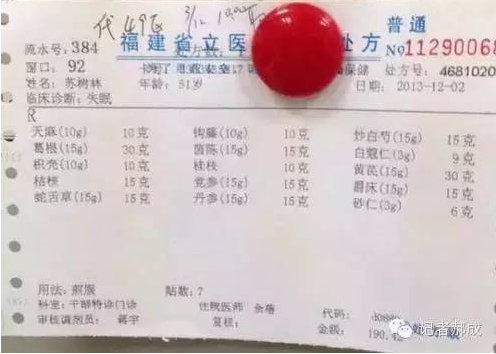 代煎
普通
流水号: 384
福建省立医 处方 No11290068
窗口: 92
保健 处方号: 4681020
姓名: 苏树林
年龄: 51岁
日期: 2013-12-02
临床诊断: 失眠
R
天麻(10g) 10克 钩藤(10g) 10克 炒白芍(15g) 15克
葛根(15g) 30克 茵陈(15g) 15克 白蔻仁(3g) 9克
枳壳(10g) 10克 桂枝 10克 黄芪(15g) 30克
桔梗 15克 党参(15g) 15克 爵床(15g) 15克
蛇舌草(15g) 15克 丹参(15g) 15克 砂仁(3g) 6克
用法: 煎服 贴数: 7
科室: 干部特诊门诊 住院医师 余蓓 代码: d0886
审核调剂员: 蒋宇 复核: 金额: 190.4
记者郝成